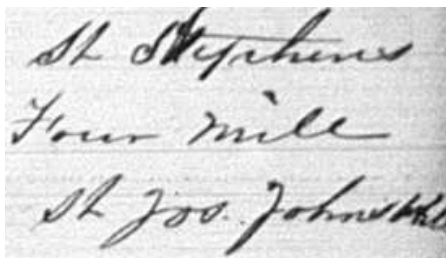 St Stephens
Four Mill
St Jos. Johns